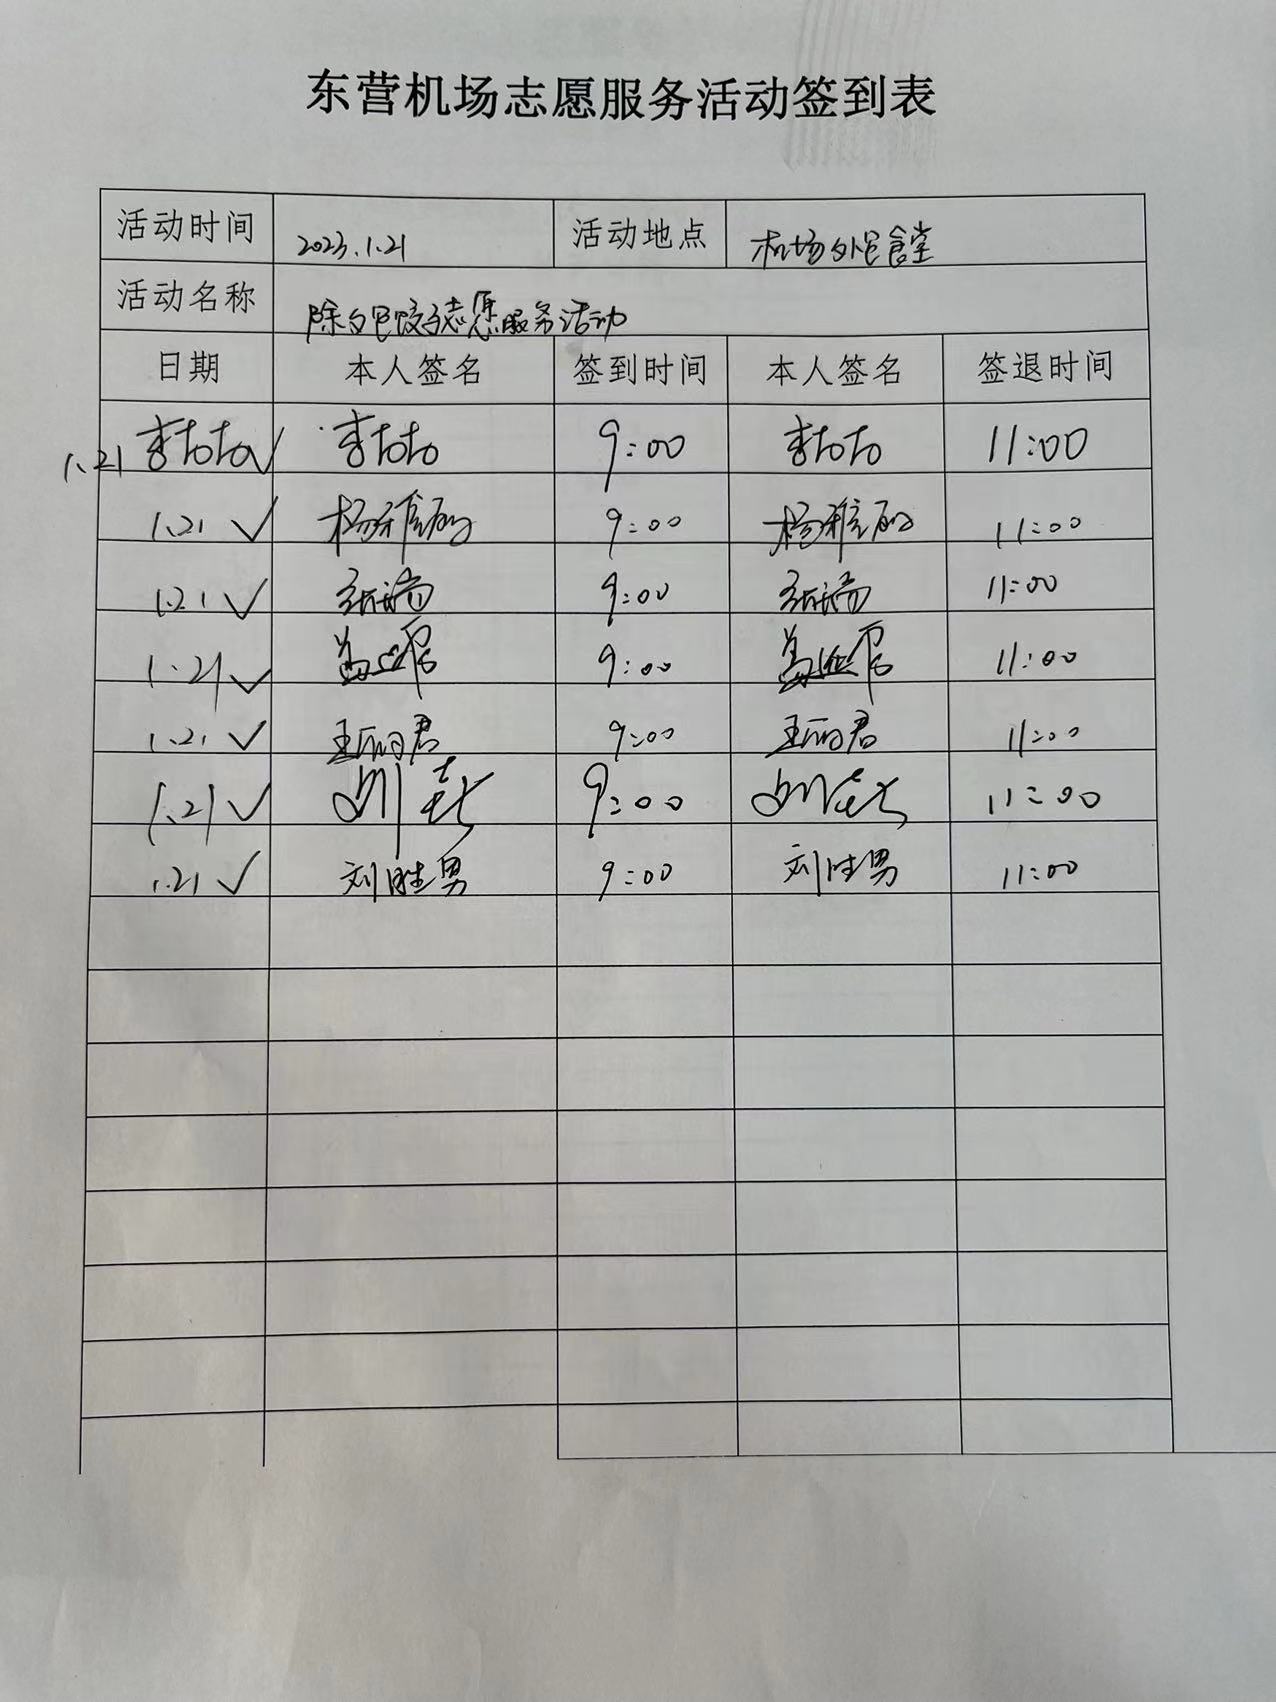 东营机场志愿服务活动签到表
活动时间 2023.1.21 活动地点 机场外包食堂
活动名称 除夕包饺子志愿服务活动
日期 本人签名 签到时间 本人签名 签退时间
1.21 ✓ 9:00 11:00
1.21 ✓ 杨雅 9:00 杨雅 11:00
1.21 ✓ 9:00 11:00
1.21 ✓ 9:00 11:00
1.21 ✓ 王丽君 9:00 王丽君 11:00
1.21 ✓ 9:00 11:00
1.21 ✓ 刘胜男 9:00 刘胜男 11:00